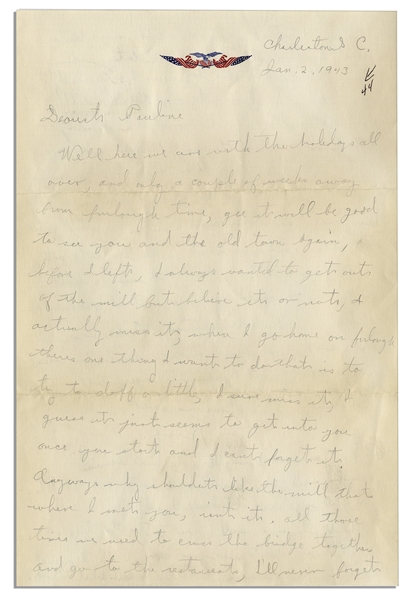 Charleston S C.
Jan. 2, 1943
44
Dearest Pauline
Well here we are with the holidays all
over, and only a couple of weeks away
from furlough time, gee it will be good
to see you and the old town again,
before I left, I always wanted to get out
of the mill but believe it or not, I
actually miss it, when I go home on furlough
theres one thing I want to do thats is to
try to doff a little, I sure miss it, I
guess it just seems to get into you
once you start and I cant forget it.
Anyways why shouldnt I like the mill that
where I met you, isnt it, all those
times we used to cross the bridge together
and go to the restaurants, I'll never forget